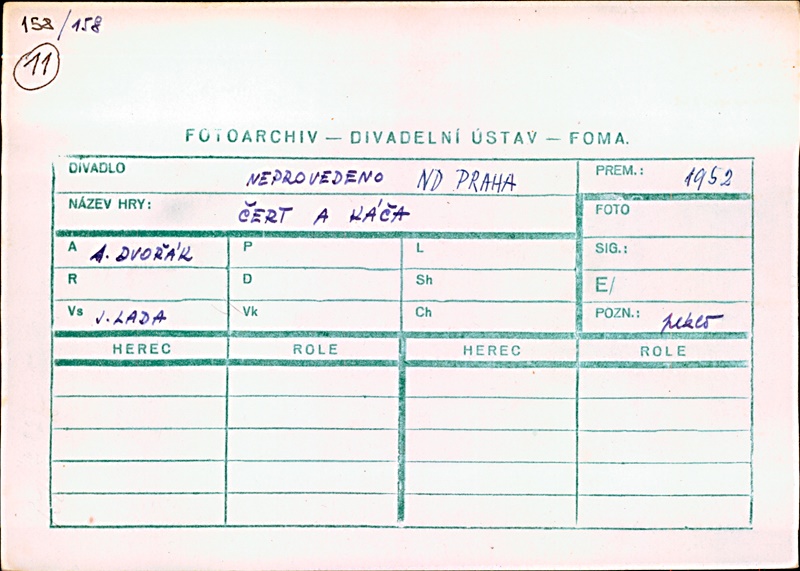 158/158
11
FOTOARCHIV — DIVADELNÍ ÚSTAV — FOMA.
DIVADLO NEPROVEDENO ND PRAHA PREM.: 1952
NÁZEV HRY: ČERT A KÁČA FOTO
A A. DVOŘÁK P L SIG.:
R D Sh E/
Vs J. LADA Vk Ch POZN.: peklo
HEREC ROLE HEREC ROLE